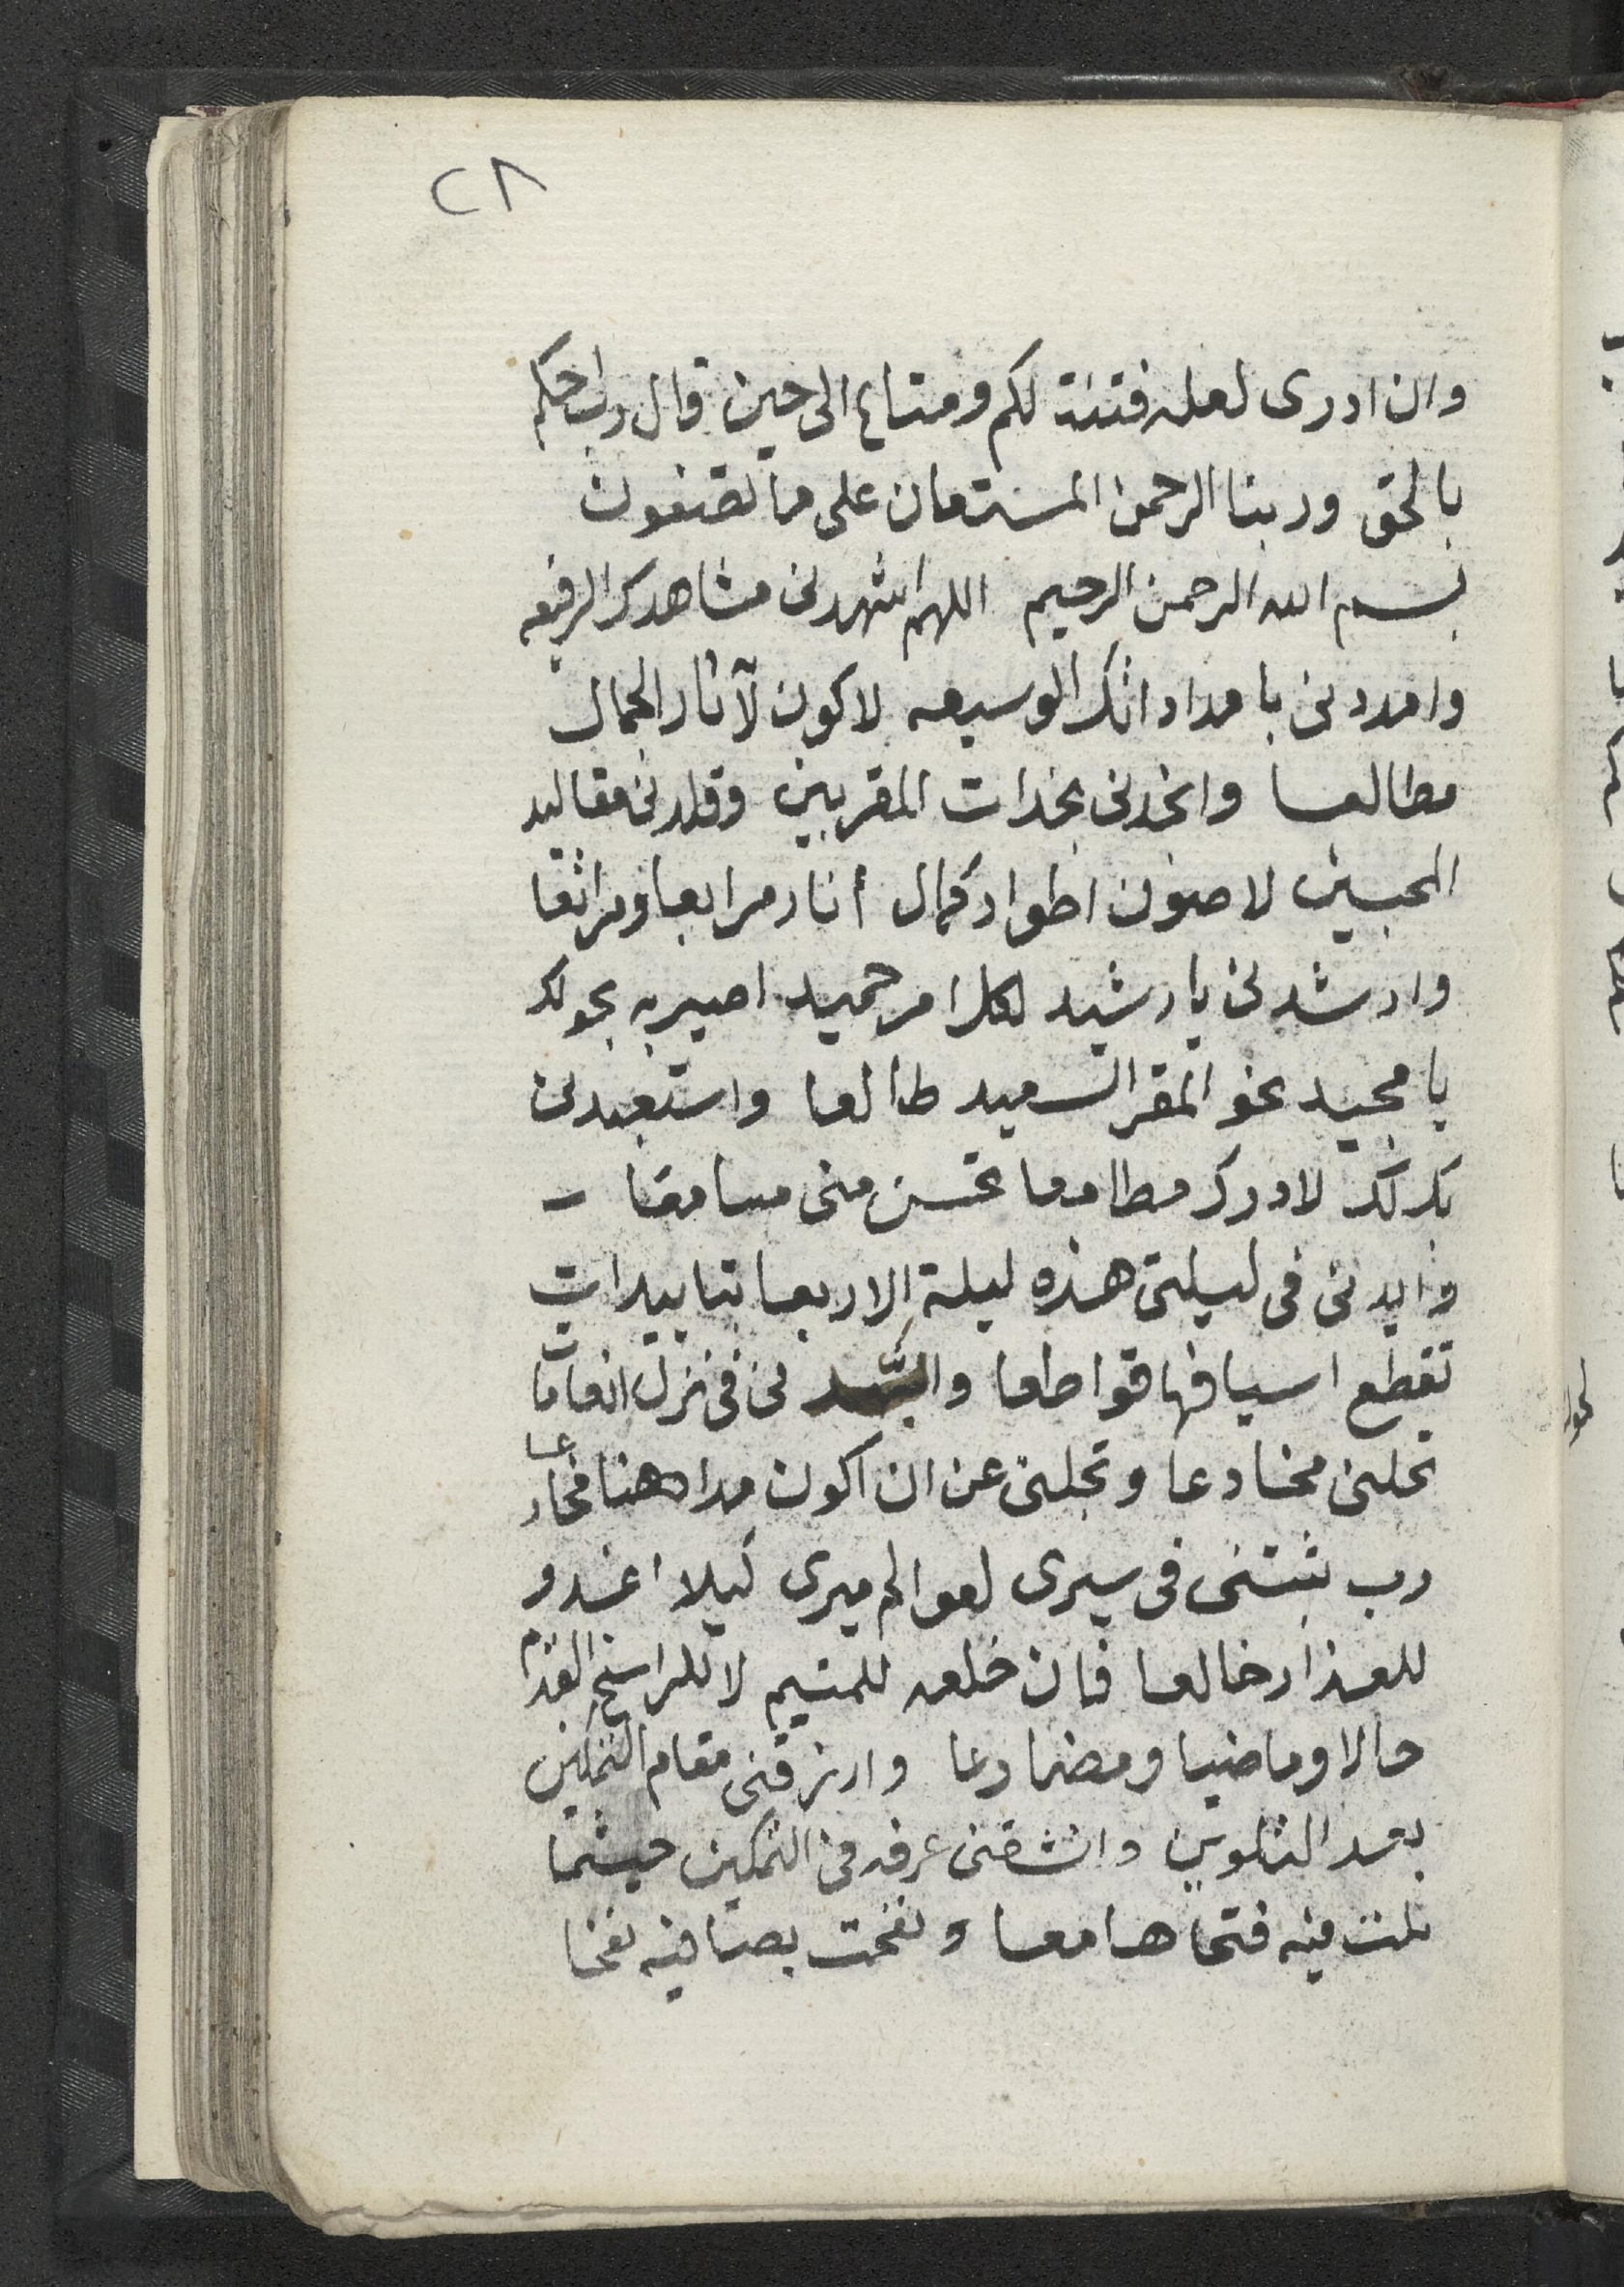 ٢٨
وان ادرى لعله فتنة لكم ومتاع الى حين قال رب احكم
بالحق وربنا الرحمن المستعان على ما تصفون
بسم الله الرحمن الرحيم اللهم اشهدنى مشاهدك الرفيعه
وامددنى بامداداتك الوسيعه لاكون لآثار الجمال
مطالعا وانجدنى بنجدات المقربين وقلدنى مقاليد
المحبين لاصون اطوار كمال أنار مرابعا ومراتعا
وارشدنى يا رشيد لكل امر حميد اصير به بحولك
يا مجيد نحو المقر السعيد طالعا واستعبدنى
بك لك لادرك مطامعا تحسن منى مسامعا
وايدنى فى ليلتى هذه ليلة الاربعا بتاييدات
تقطع اسيافها قواطعا نى فى نزل انعاما
تحلنى مخادعا وتجلنى عن ان اكون مداهنا مخادعا
رب ثبتنى فى سيرى لعوالم ميرى كيلا اغدو
للعذار خالعا فان خلعه للمتيم لا للراسخ القدم
حالا وماضيا ومضارعا وارزقنى مقام التمكين
بعد التلوين وانشقنى عرفه فى التمكين حيثما
نلت فيه فتحا هامعا ونفخت بصافيه نفخا